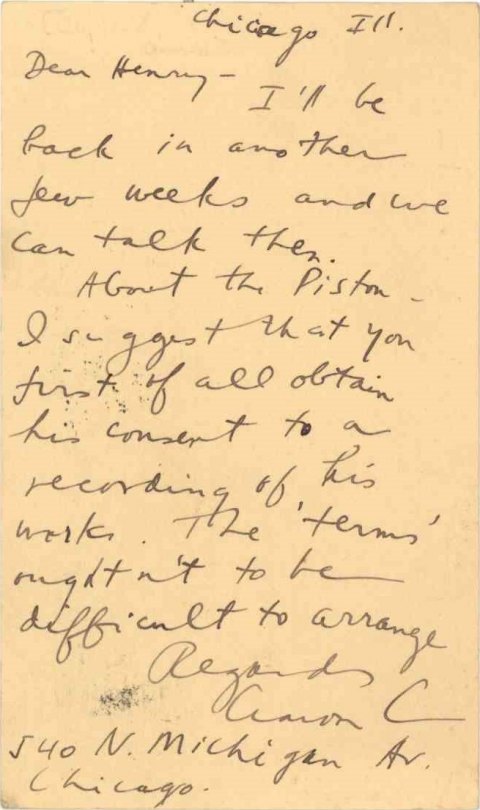 Chicago Ill.
Dear Henry –
I'll be
back in another
few weeks and we
can talk then.
About the Piston –
I suggest that you
first of all obtain
his consent to a
recording of his
works. The 'terms'
oughtn't to be
difficult to arrange
Regards
Aaron C
540 N. Michigan Av.
Chicago.